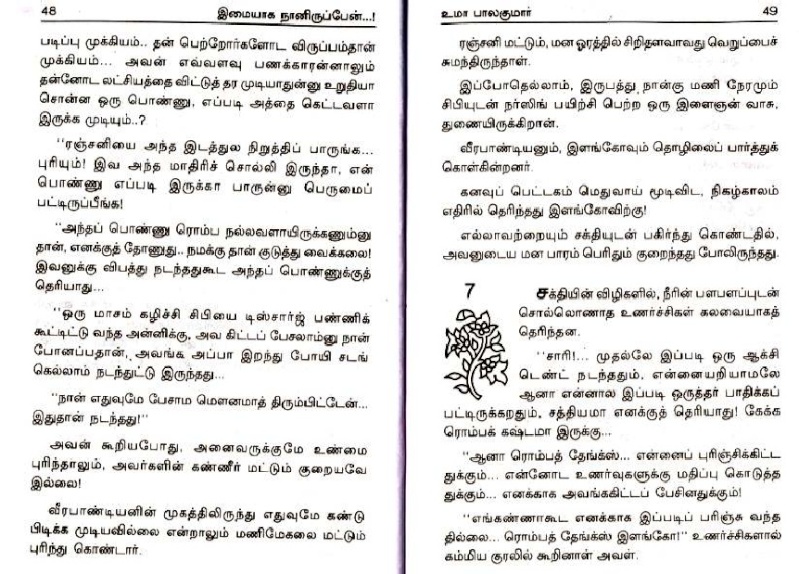 48 இமையாக நானிருப்பேன்...!
படிப்பு முக்கியம்.. தன் பெற்றோர்களோட விருப்பம்தான்
முக்கியம்... அவன் எவ்வளவு பணக்காரன்னாலும்
தன்னோட லட்சியத்தை விட்டுத் தர முடியாதுன்னு உறுதியா
சொன்ன ஒரு பொண்ணு, எப்படி அத்தை கெட்டவளா
இருக்க முடியும்..?
“ரஞ்சனியை அந்த இடத்துல நிறுத்திப் பாருங்க...
புரியும்! இவ அந்த மாதிரிச் சொல்லி இருந்தா, என்
பொண்ணு எப்படி இருக்கா பாருன்னு பெருமைப்
பட்டிருப்பீங்க!
“அந்தப் பொண்ணு ரொம்ப நல்லவளாயிருக்கணும்னு
தான், எனக்குத் தோணுது.. நமக்கு தான் குடுத்து வைக்கலை!
இவனுக்கு விபத்து நடந்ததுகூட அந்தப் பொண்ணுக்குத்
தெரியாது...
“ஒரு மாசம் கழிச்சி சிபியை டிஸ்சார்ஜ் பண்ணிக்
கூட்டிட்டு வந்த அன்னிக்கு, அவ கிட்டப் பேசலாம்னு நான்
போனப்பதான், அவங்க அப்பா இறந்து போயி சடங்
கெல்லாம் நடந்துட்டு இருந்தது...
“நான் எதுவுமே பேசாம மௌனமாத் திரும்பிட்டேன்...
இதுதான் நடந்தது!”
அவன் கூறியபோது, அனைவருக்குமே உண்மை
புரிந்தாலும், அவர்களின் கண்ணீர் மட்டும் குறையவே
இல்லை!
வீரபாண்டியனின் முகத்திலிருந்து எதுவுமே கண்டு
பிடிக்க முடியவில்லை என்றாலும் மணிமேகலை மட்டும்
புரிந்து கொண்டார்.
உமா பாலகுமார் 49
ரஞ்சனி மட்டும், மன ஓரத்தில் சிறிதளவாவது வெறுப்பைச்
சுமந்திருந்தாள்.
இப்போதெல்லாம், இருபத்து நான்கு மணி நேரமும்
சிபியுடன் நர்ஸிங் பயிற்சி பெற்ற ஒரு இளைஞன் வாசு,
துணையிருக்கிறான்.
வீரபாண்டியனும், இளங்கோவும் தொழிலைப் பார்த்துக்
கொள்கின்றனர்.
கனவுப் பெட்டகம் மெதுவாய் மூடிவிட, நிகழ்காலம்
எதிரில் தெரிந்தது இளங்கோவிற்கு!
எல்லாவற்றையும் சக்தியுடன் பகிர்ந்து கொண்டதில்,
அவனுடைய மன பாரம் பெரிதும் குறைந்தது போலிருந்தது.
7 சக்தியின் விழிகளில், நீரின் பளபளப்புடன்
சொல்லொணாத உணர்ச்சிகள் கலவையாகத்
தெரிந்தன.
“சாரி!... முதல்லே இப்படி ஒரு ஆக்சி
டெண்ட் நடந்ததும், என்னையறியாமலே
ஆனா என்னால இப்படி ஒருத்தர் பாதிக்கப்
பட்டிருக்கறதும், சத்தியமா எனக்குத் தெரியாது! கேக்க
ரொம்பக் கஷ்டமா இருக்கு...
“ஆனா ரொம்பத் தேங்க்ஸ்... என்னைப் புரிஞ்சிக்கிட்ட
துக்கும்... என்னோட உணர்வுகளுக்கு மதிப்பு கொடுத்த
துக்கும்... எனக்காக அவங்ககிட்டப் பேசினதுக்கும்!
“எங்கண்ணாகூட எனக்காக இப்படிப் பரிஞ்சு வந்த
தில்லை... ரொம்பத் தேங்க்ஸ் இளங்கோ!” உணர்ச்சிகளால்
கம்மிய குரலில் கூறினாள் அவள்.